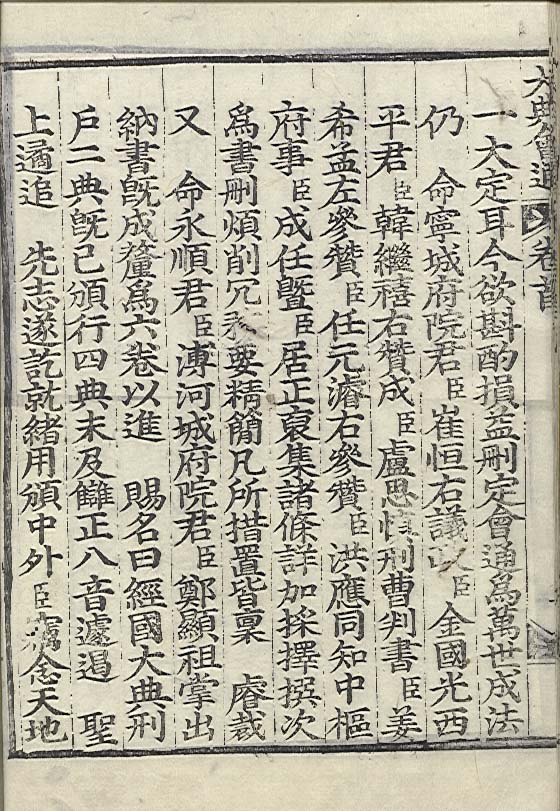 大典會通 卷首
一大定耳今欲斟酌損益刪定會通爲萬世成法
仍 命寧城府院君臣崔恒右議政臣金國光西
平君臣韓繼禧右贊成臣盧思愼刑曹判書臣姜
希孟左參贊臣任元濬右參贊臣洪應同知中樞
府事臣成任曁臣居正裒集諸條詳加採擇撰次
爲書刪煩削冗務要精簡凡所措置皆稟 睿裁
又 命永順君臣溥河城府院君臣鄭顯祖掌出
納書旣成釐爲六卷以進 賜名曰經國大典刑
戶二典旣已頒行四典未及讎正八音遽遏 聖
上遹追 先志遂訖就緒用頒中外臣竊念天地